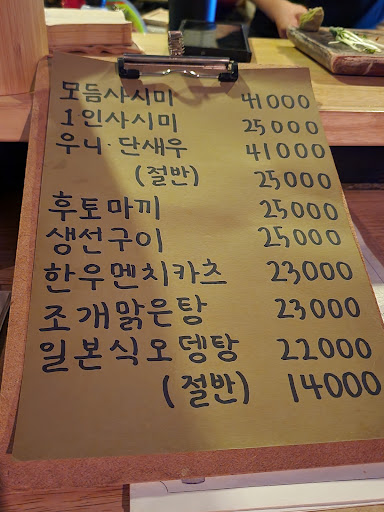 모듬사시미 41000
1인사시미 25000
우니·단새우 41000
(절반) 25000
후토마끼 25000
생선구이 25000
한우멘치카츠 23000
조개맑은탕 23000
일본식오뎅탕 22000
(절반) 14000